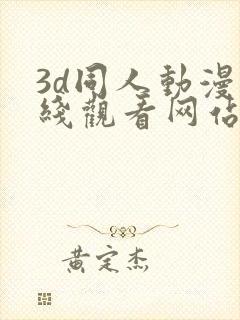 3d同人動漫
綫觀看网佔
黄定杰